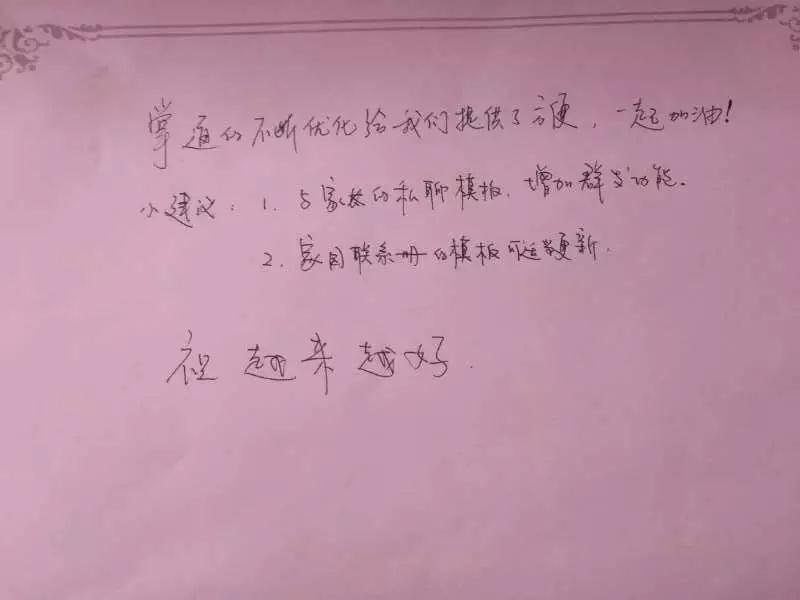 掌通的不断优化给我们提供了方便，一起加油！
小建议：1. 与家长的私聊模板，增加群发功能。
2. 家园联系册的模板可适当更新.
祝越来越好.